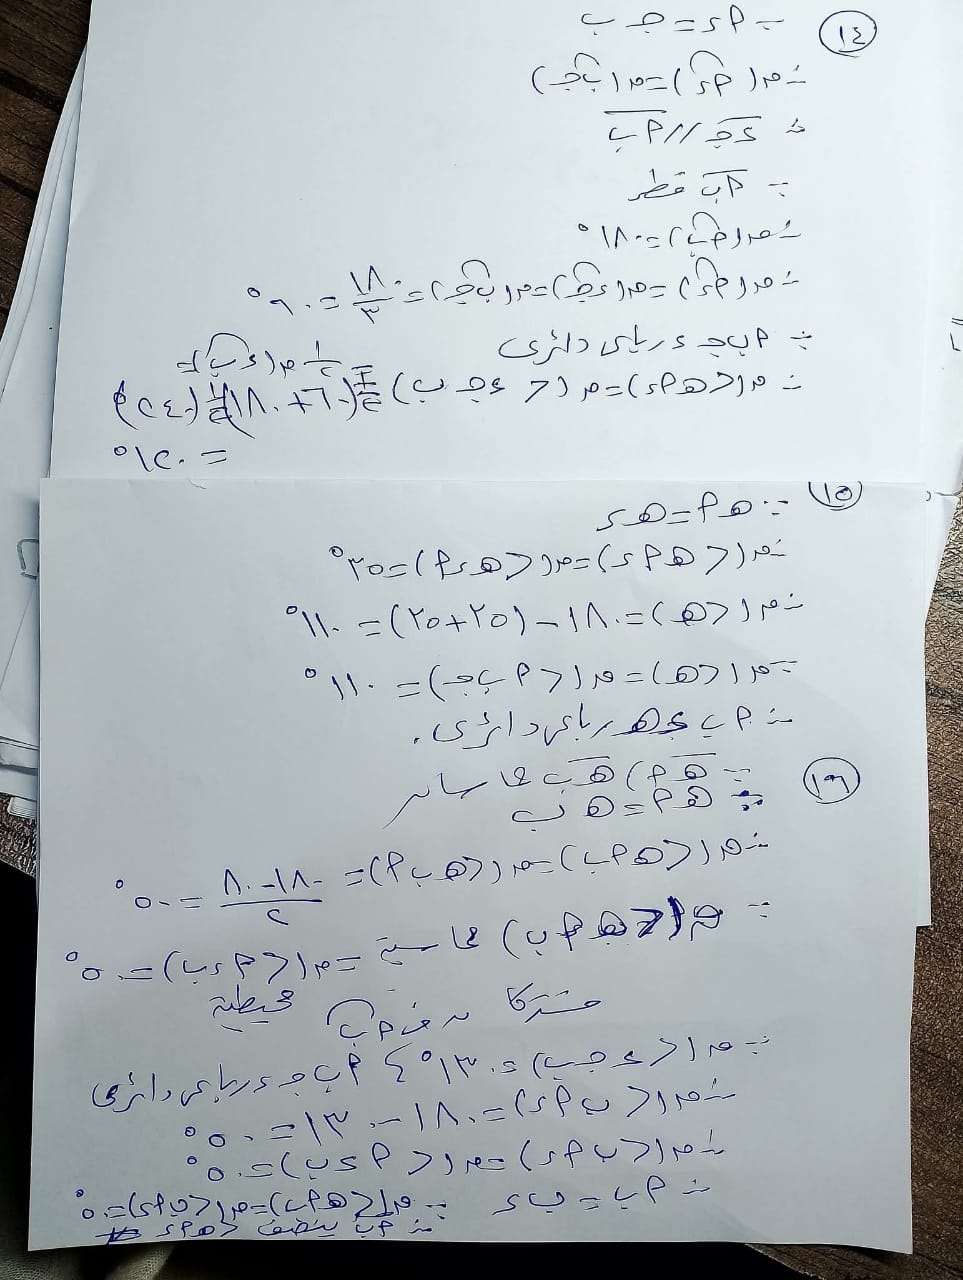 ١٤
∵ أ د = جـ ب
∴ ق(أ د) = ق(ب جـ)
∵ د جـ // أ ب
∵ أ ب قطر
∴ ق(أ ب) = ١٨٠°
∴ ق(أ د) = ق(د جـ) = ق(ب جـ) = ١٨٠/٣ = ٦٠°
∵ أ ب جـ د رباعي دائري
∴ ق(< هـ أ د) = ق(< د جـ ب) = ١/٢ ق(د ب) =
١/٢ (٦٠ + ١٨٠) = ١/٢ (٢٤٠)
= ١٢٠°
١٥
∵ هـ أ = هـ د
∴ ق(< هـ أ د) = ق(< هـ د أ) = ٣٥°
∴ ق(< هـ) = ١٨٠ - (٣٥ + ٣٥) = ١١٠°
∵ ق(< هـ) = ق(< أ ب جـ) = ١١٠°
∴ أ ب د هـ رباعي دائري.
١٦
∵ هـ أ ، هـ ب مماسان
∴ هـ أ = هـ ب
∴ ق(< هـ أ ب) = ق(< هـ ب أ) = (١٨٠ - ٨٠)/٢ = ٥٠°
∵ ق(< هـ أ ب) مماسية = ق(< أ د ب) = ٥٠°
محيطية
مشتركا في أ ب
∵ ق(< د جـ ب) = ١٣٠° ، أ ب جـ د رباعي دائري
∴ ق(< ب أ د) = ١٨٠ - ١٣٠ = ٥٠°
∴ ق(< ب أ د) = ق(< أ د ب) = ٥٠°
∴ أ ب = ب د
∵ ق(< هـ أ ب) = ق(< ب أ د) = ٥٠°
∴ أ ب ينصف < هـ أ د